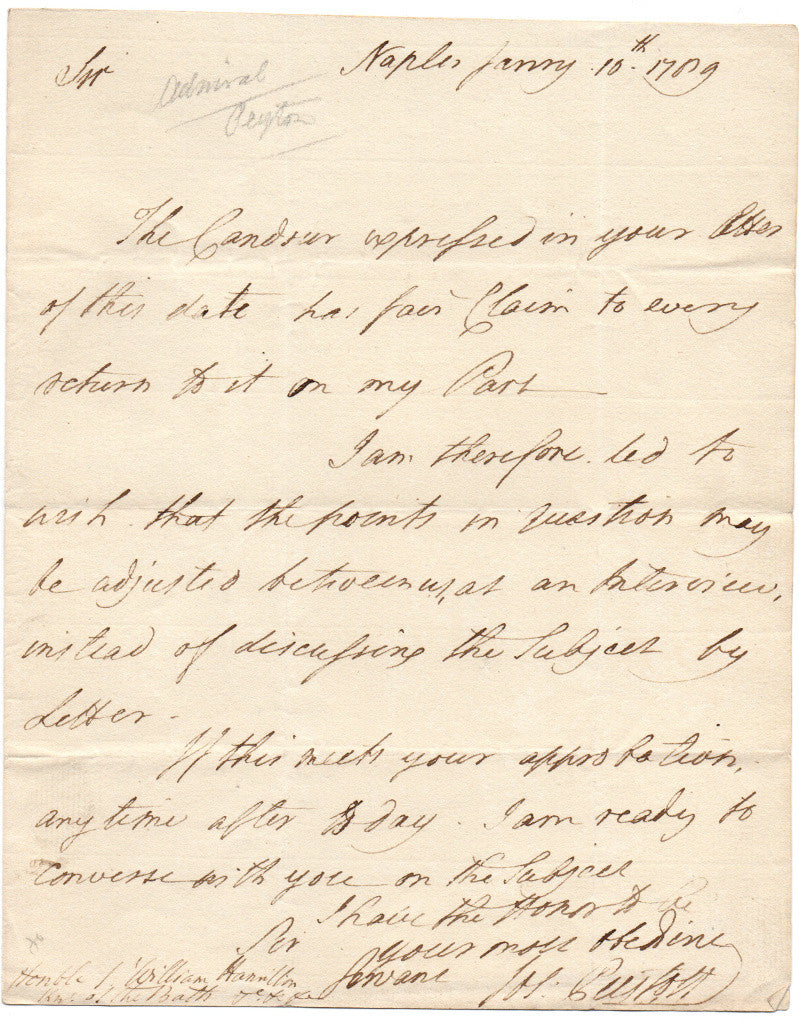 Sir Naples Janry. 10th. 1789
Admiral
Peyton
The Candour expressed in your letter
of this date has fair Claim to every
return to it on my Part
I am therefore led to
wish that the points in question may
be adjusted between us, at an Interview,
instead of discussing the Subject by
Letter.
If this meets your approbation,
any time after day. I am ready to
converse with you on the Subject
I have the Honor to be
Sir your most obedient
Servant
Honble Sr. William Hamilton
Knt of the Bath &c &c &c